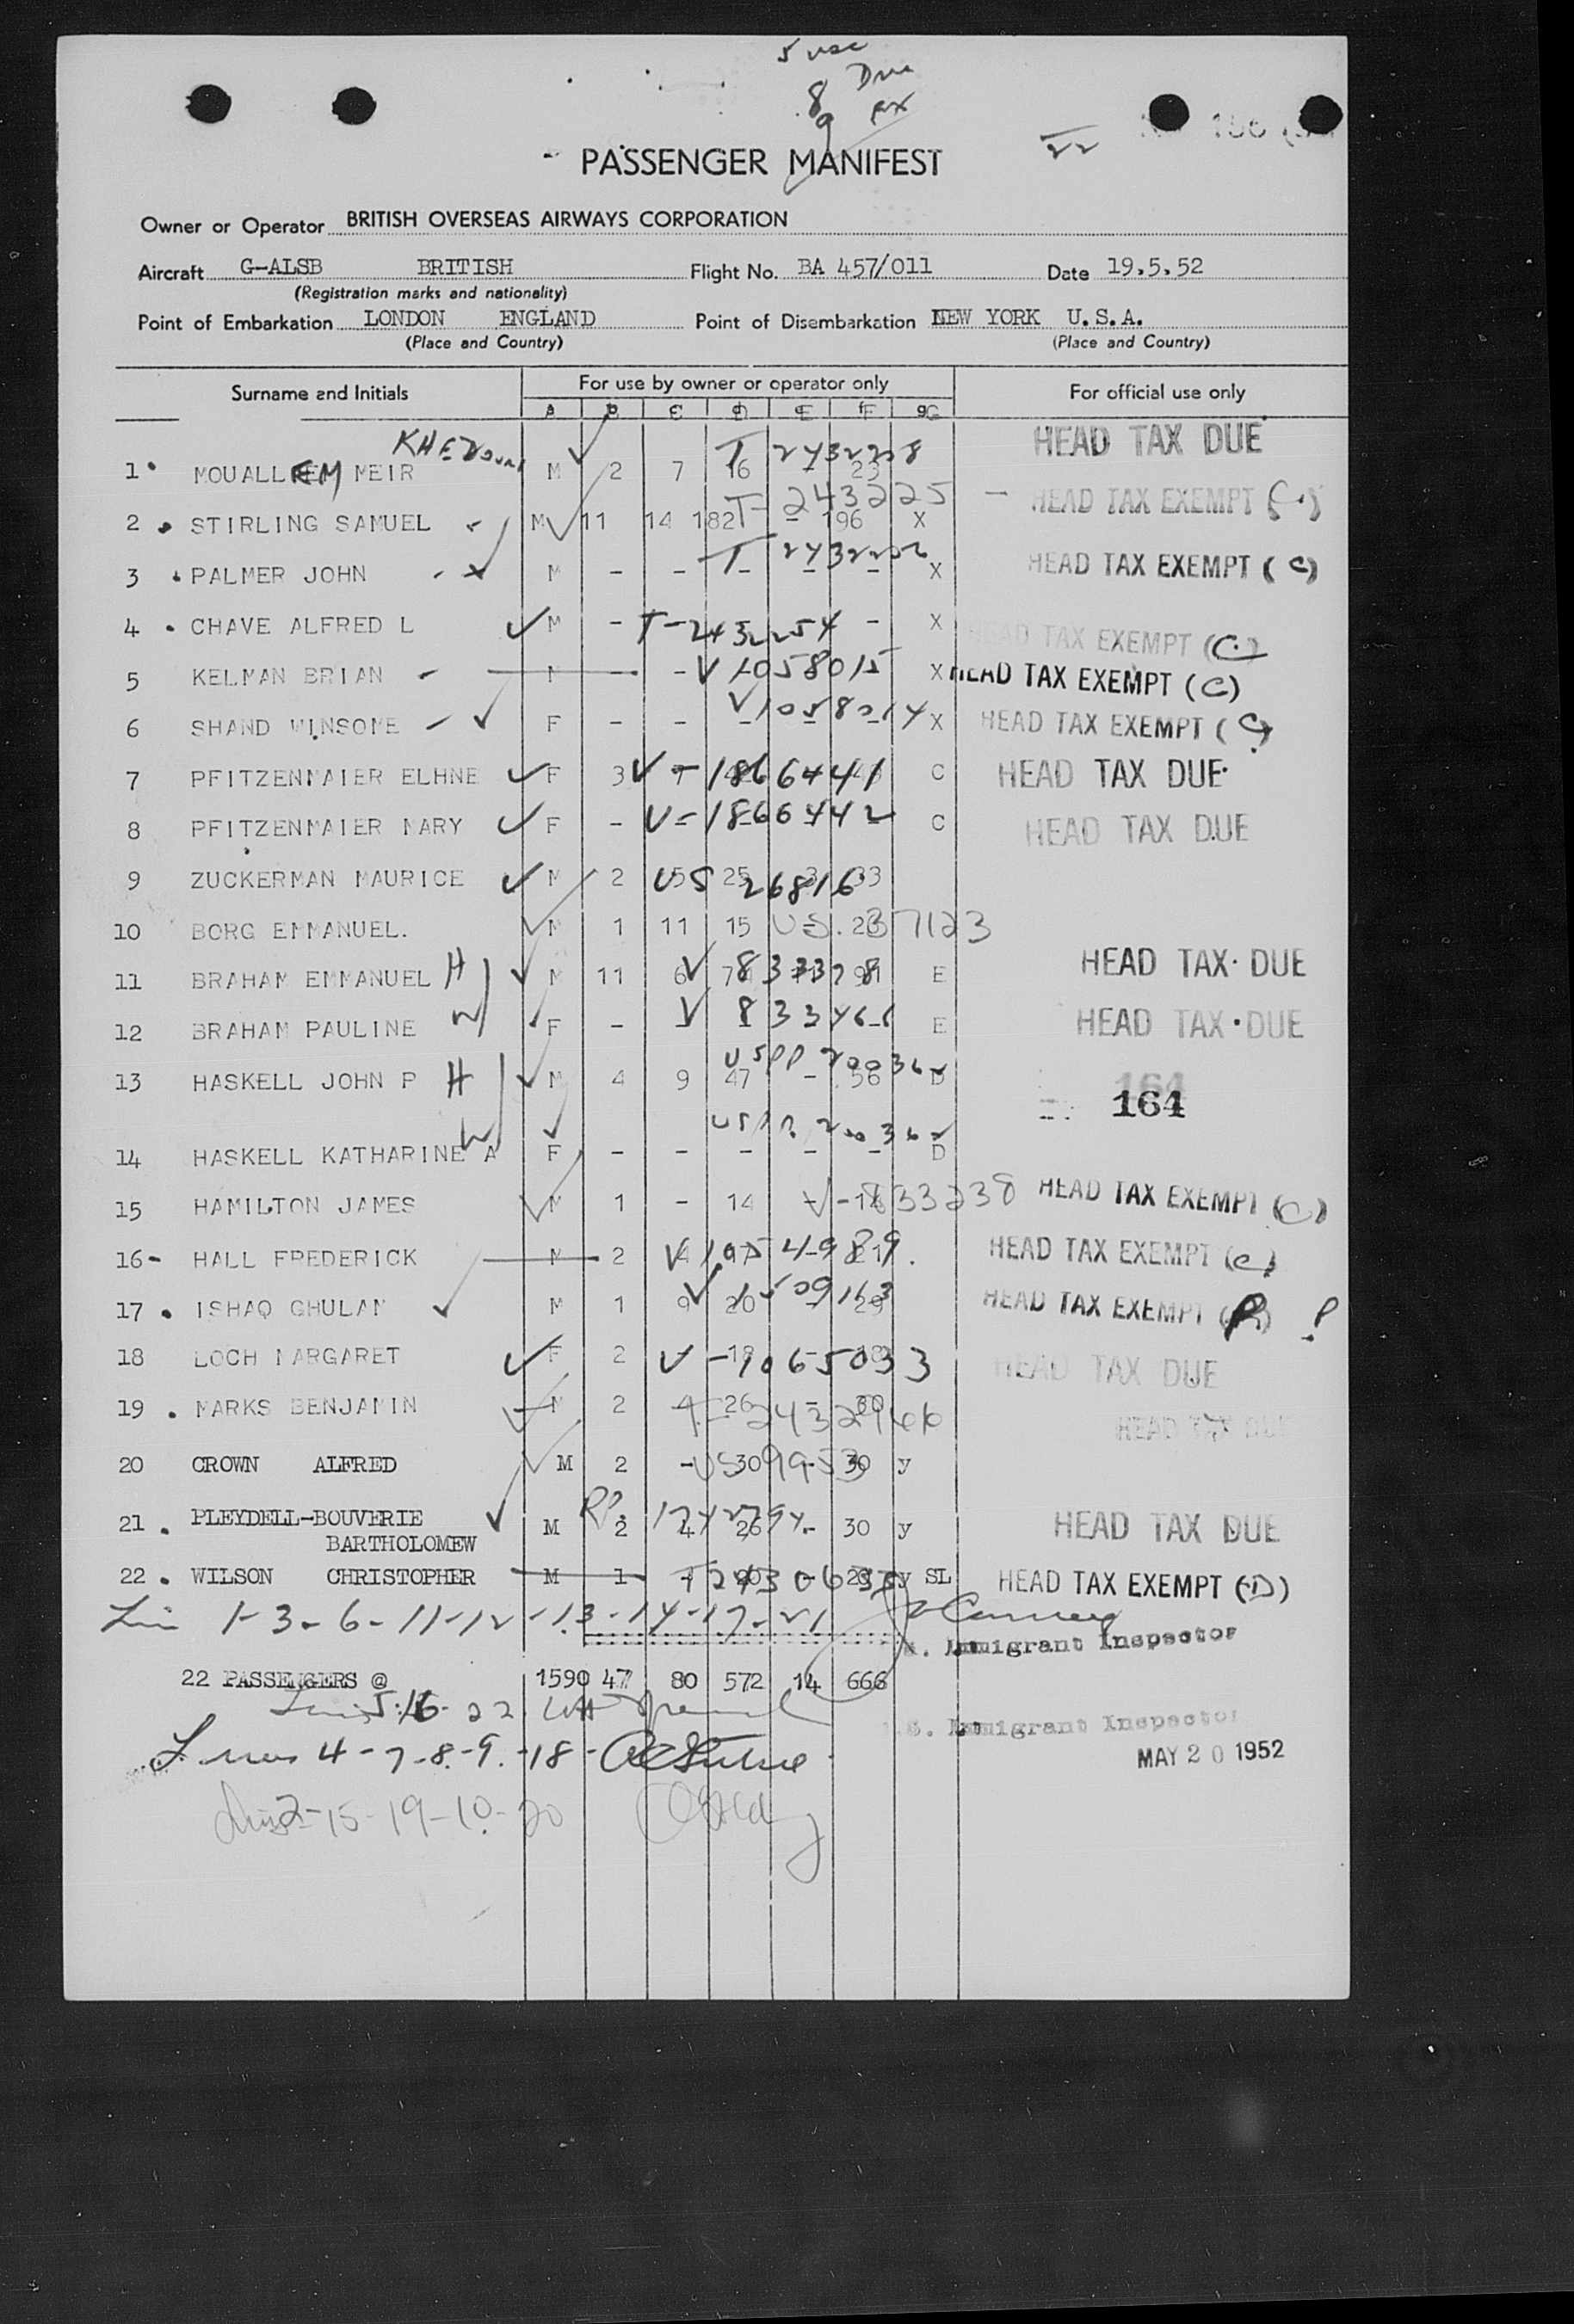 5 usc
8 Due
9 ex
22
PASSENGER MANIFEST
Owner or Operator BRITISH OVERSEAS AIRWAYS CORPORATION
Aircraft G-ALSB BRITISH Flight No. BA 457/011 Date 19.5.52
(Registration marks and nationality)
Point of Embarkation LONDON ENGLAND Point of Disembarkation NEW YORK U.S.A.
(Place and Country) (Place and Country)
Surname and Initials For use by owner or operator only For official use only
A B C D E F G
HEAD TAX DUE
1 MOUALLEM MEIR M 2 7 16 - 23 T 2432208
2 STIRLING SAMUEL M 11 14 182 - 196 X T-2432225 HEAD TAX EXEMPT (C)
3 PALMER JOHN M - - - - - X HEAD TAX EXEMPT (C)
4 CHAVE ALFRED L M - - X T-2432254 HEAD TAX EXEMPT (C)
5 KELMAN BRIAN M - - X V 1058015 HEAD TAX EXEMPT (C)
6 SHAND WINSOME F - - - - - X V 1058014 HEAD TAX EXEMPT (C)
7 PFITZENMAIER ELHNE F 3 C V-1866441 HEAD TAX DUE
8 PFITZENMAIER MARY F - - - - - C V-1866442 HEAD TAX DUE
9 ZUCKERMAN MAURICE M 2 5 25 3 33 US 26816
10 BORG EMMANUEL. M 1 11 15 - 26 US 37123
11 BRAHAM EMMANUEL H M 11 6 E V 833378 HEAD TAX DUE
12 BRAHAM PAULINE W F - - - - - E V 833461 HEAD TAX DUE
13 HASKELL JOHN P H M 4 9 47 - 56 D USPP 200362
164
14 HASKELL KATHARINE A W F - - - - - D USPP 200362
15 HAMILTON JAMES M 1 - 14 - V-833238 HEAD TAX EXEMPT (C)
16 HALL FREDERICK M 2 4 17 - 21 V 1054989 HEAD TAX EXEMPT (C)
17 ISHAQ GHULAM M 1 9 20 - 29 V 1509163 HEAD TAX EXEMPT
18 LOCH MARGARET F 2 - 18 - 18 V-1065033 HEAD TAX DUE
19 MARKS BENJAMIN M 2 4 26 - 30 HEAD TAX DUE
20 CROWN ALFRED M 2 - 30 - 30 y
21 PLEYDELL-BOUVERIE M 2 4 26 - 30 y HEAD TAX DUE
BARTHOLOMEW
22 WILSON CHRISTOPHER M 1 y SL HEAD TAX EXEMPT (D)
Lin 1-3-6-11-12-13-14-17-21
Immigrant Inspector
22 PASSENGERS @ 1590 47 80 572 14 666
Lines 5-16-22
Immigrant Inspector
Lines 4-7-8-9-18
MAY 20 1952
Lines 2-15-19-10-20